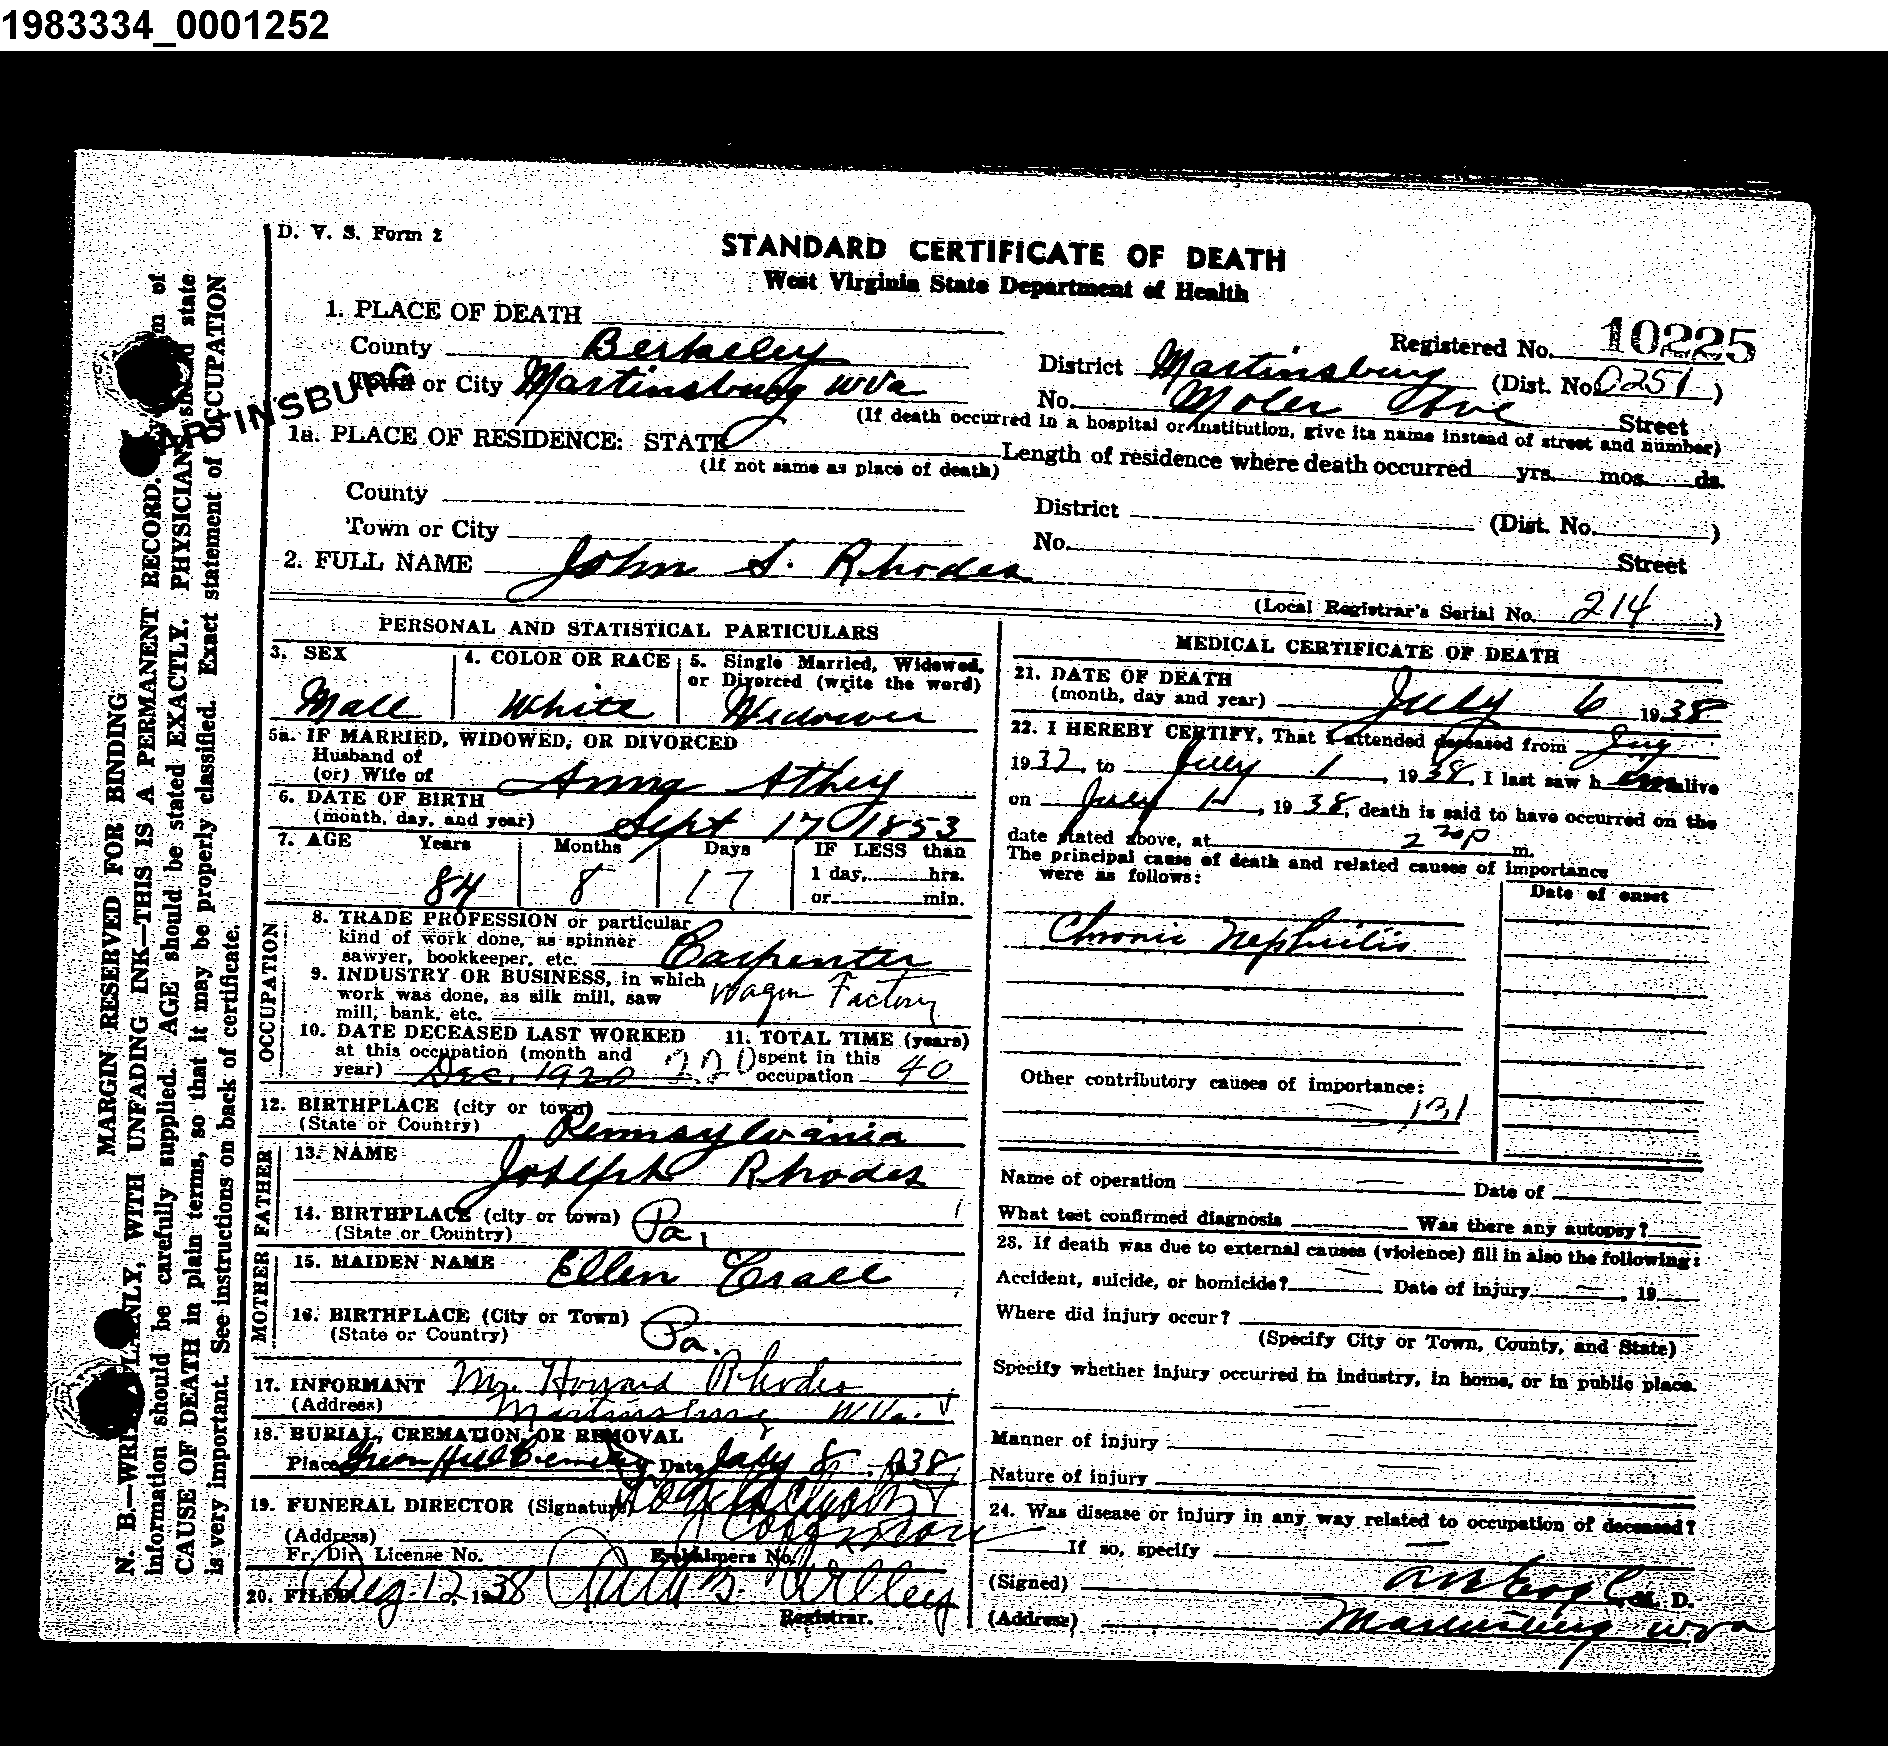 1983334_0001252
D. V. S. Form 2
STANDARD CERTIFICATE OF DEATH
West Virginia State Department of Health
1. PLACE OF DEATH
Registered No. 10225
County Berkeley District Martinsburg (Dist. No. 0251)
Town or City Martinsburg WVa No. Moler Ave Street
(If death occurred in a hospital or institution, give its name instead of street and number)
1a. PLACE OF RESIDENCE: STATE
(If not same as place of death)
Length of residence where death occurred yrs. mos. ds.
County District (Dist. No. )
Town or City No. Street
2. FULL NAME John S. Rhodes
(Local Registrar's Serial No. 214 )
PERSONAL AND STATISTICAL PARTICULARS
3. SEX
Male
4. COLOR OR RACE
White
5. Single Married, Widowed,
or Divorced (write the word)
Widower
5a. IF MARRIED, WIDOWED, OR DIVORCED
Husband of
(or) Wife of Anna Athey
6. DATE OF BIRTH
(month, day, and year) Sept 17 1853
7. AGE Years Months Days IF LESS than
84 8 17 1 day, hrs.
or min.
OCCUPATION
8. TRADE PROFESSION or particular
kind of work done, as spinner
sawyer, bookkeeper, etc. Carpenter
9. INDUSTRY OR BUSINESS, in which
work was done, as silk mill, saw
mill, bank, etc. Wagon Factory
10. DATE DECEASED LAST WORKED
at this occupation (month and
year) Dec. 1920 220
11. TOTAL TIME (years)
spent in this
occupation 40
12. BIRTHPLACE (city or town)
(State or Country) Pennsylvania
FATHER
13. NAME Joseph Rhodes
14. BIRTHPLACE (city or town)
(State or Country) Pa.
MOTHER
15. MAIDEN NAME Ellen
16. BIRTHPLACE (City or Town)
(State or Country) Pa.
17. INFORMANT Mr. Howard Rhodes
(Address) Martinsburg W Va.
18. BURIAL, CREMATION, OR REMOVAL
Place Green Hill Cemetery Date July 8, 1938
19. FUNERAL DIRECTOR (Signature)
(Address)
Fr. Dir. License No. Embalmers No.
20. FILED Aug. 12, 1938
Registrar.
MEDICAL CERTIFICATE OF DEATH
21. DATE OF DEATH
(month, day and year) July 6 1938
22. I HEREBY CERTIFY, That I attended deceased from
1937, to July 1, 1938, I last saw h alive
on July 1, 1938, death is said to have occurred on the
date stated above, at 2 30 p m.
The principal cause of death and related causes of importance
were as follows:
Date of onset
Chronic Nephritis
Other contributory causes of importance:
131
Name of operation Date of
What test confirmed diagnosis Was there any autopsy?
23. If death was due to external causes (violence) fill in also the following:
Accident, suicide, or homicide? Date of injury , 19
Where did injury occur?
(Specify City or Town, County, and State)
Specify whether injury occurred in industry, in home, or in public place.
Manner of injury
Nature of injury
24. Was disease or injury in any way related to occupation of deceased?
If so, specify
(Signed) M. D.
(Address) Martinsburg WVa
MARGIN RESERVED FOR BINDING
N. B.—WRITE PLAINLY, WITH UNFADING INK—THIS IS A PERMANENT RECORD. Every item of
information should be carefully supplied. AGE should be stated EXACTLY. PHYSICIANS should state
CAUSE OF DEATH in plain terms, so that it may be properly classified. Exact statement of OCCUPATION
is very important. See instructions on back of certificate.